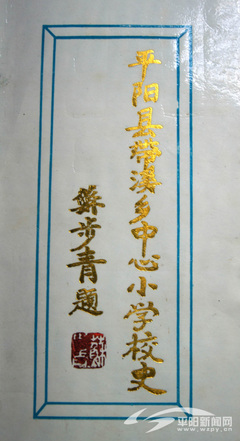 平阳县带溪乡中心小学校史
苏步青题
平阳新闻网
www.wspy.cn